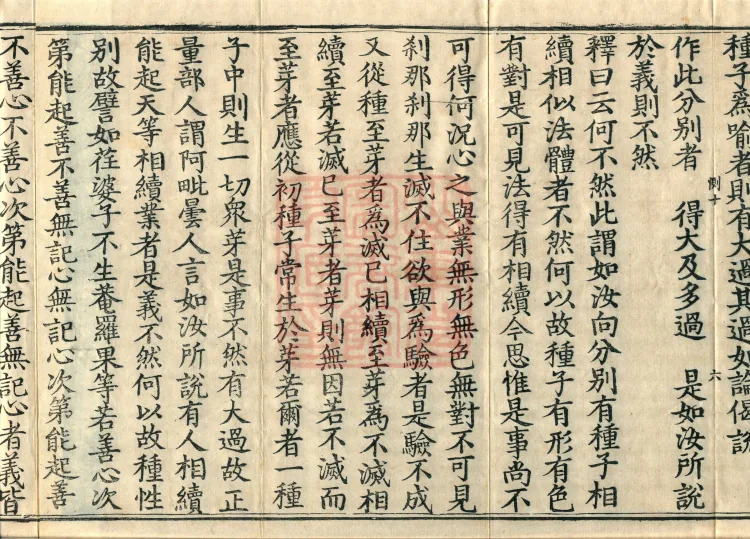 種子為喻者則有大過其過如論偈說
作此分別者 得大及多過 是如汝所說
於義則不然
釋曰云何不然此謂如汝向分別有種子相
續相似法體者不然何以故種子有形有色
有對是可見法得有相續今思惟是事尚不
可得何況心之與業無形無色無對不可見
剎那剎那生滅不住欲與為驗者是驗不成
又從種至芽者為滅已相續至芽為不滅相
續至芽若滅已至芽者芽則無因若不滅而
至芽者應從初種子常生於芽若爾者一種
子中則生一切眾芽是事不然有大過故正
量部人謂阿毗曇人言如汝所說有人相續
能起天等相續業者是義不然何以故種性
別故譬如荏婆子不生菴羅果等若善心次
第能起善不善無記心無記心次第能起善
不善心不善心次第能起善無記心者義皆